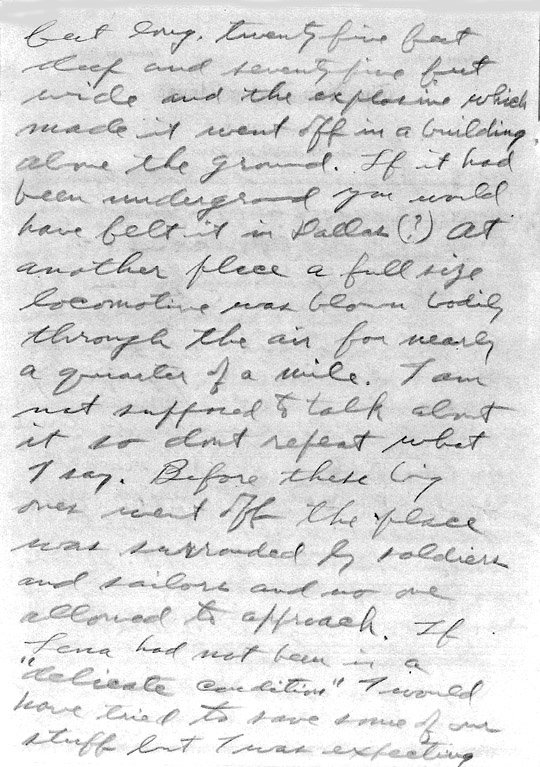 feet long, twenty five feet
deep and seventy five feet
wide and the explosive which
made it went off in a building
above the ground. If it had
been undergroud you would
have felt it in Dallas (?) At
another place a full size
locomotive was blown bodily
through the air for nearly
a quarter of a mile. I am
not supposed to talk about
it so dont repeat what
I say. Before these big
ones went off the place
was surrouded by soldiers
and sailors and no one
allowed to approach. If
Lena had not been in a
"delicate condition" I would
have tried to save some of our
stuff but I was expecting